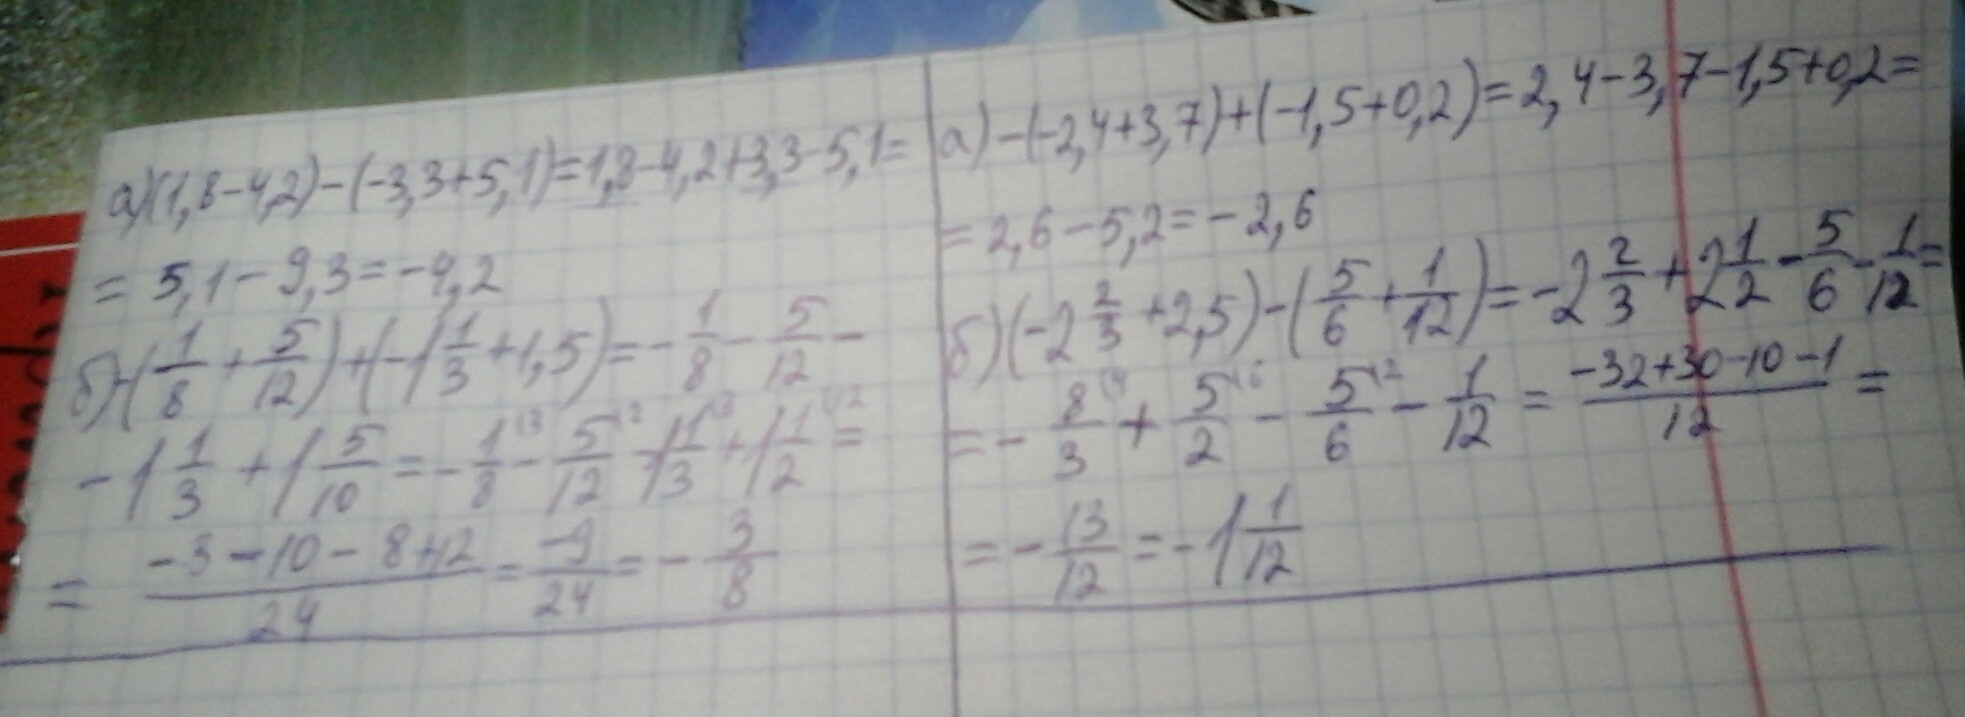 а)(1,8-4,2)-(-3,3+5,1)=1,8-4,2+3,3-5,1=
= 5,1-9,3=-4,2
б)-(1/8+5/12)+(-1 1/3+1,5)=-1/8-5/12-
-1 1/3+1 5/10=-1/8-5/12-1 1/3+1 1/2=
= (-3-10-8+12)/24=-9/24=-3/8
а)-(-2,4+3,7)+(-1,5+0,2)=2,4-3,7-1,5+0,2=
=2,6-5,2=-2,6
б)(-2 2/3+2,5)-(5/6+1/12)=-2 2/3+2 1/2-5/6-1/12=
=-8/3+5/2-5/6-1/12=(-32+30-10-1)/12=
=-13/12=-1 1/12